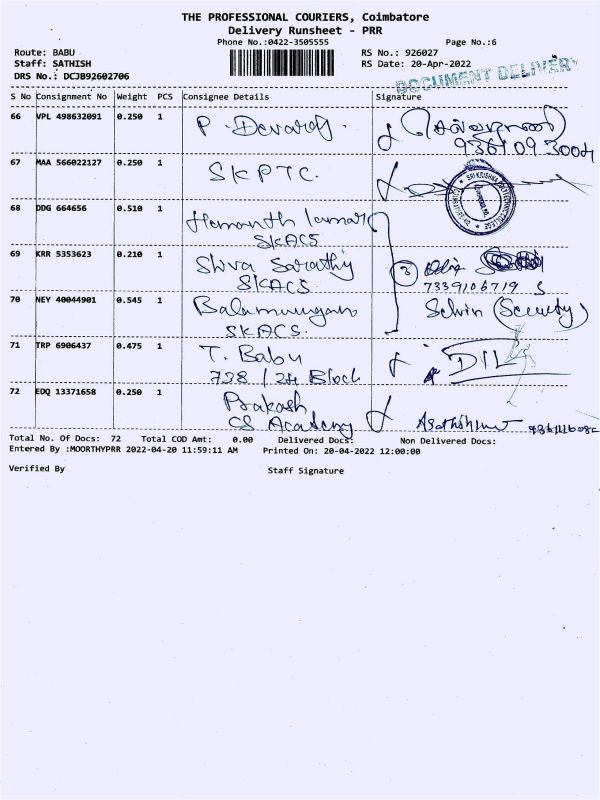 THE PROFESSIONAL COURIERS, Coimbatore
Delivery Runsheet - PRR
Phone No.:0422-3505555 Page No.:6
Route: BABU RS No.: 926027
Staff: SATHISH RS Date: 20-Apr-2022
DRS No.: DCJB92602706
DOCUMENT DELIVERY
S No Consignment No Weight PCS Consignee Details Signature
66 VPL 498632091 0.250 1 P. Devaraj.
936109 3004
67 MAA 566022127 0.250 1 SKPTC.
SRI KRISHNA POLYTECHNIC COLLEGE
68 DDG 664656 0.510 1 Hemanth kumar
SKACS
69 KRR 5353623 0.210 1 Shiva Sarathy 3
SKACS 7339106719
70 NEY 40044901 0.545 1 Balamurugan Selvin (Security)
SKACS.
71 TRP 6906437 0.475 1 T. Babu
728 / 24 Block
72 EDQ 13371658 0.250 1 Prakash
CS Academy
Total No. Of Docs: 72 Total COD Amt: 0.00 Delivered Docs: Non Delivered Docs:
Entered By :MOORTHYPRR 2022-04-20 11:59:11 AM Printed On: 20-04-2022 12:00:00
Verified By Staff Signature